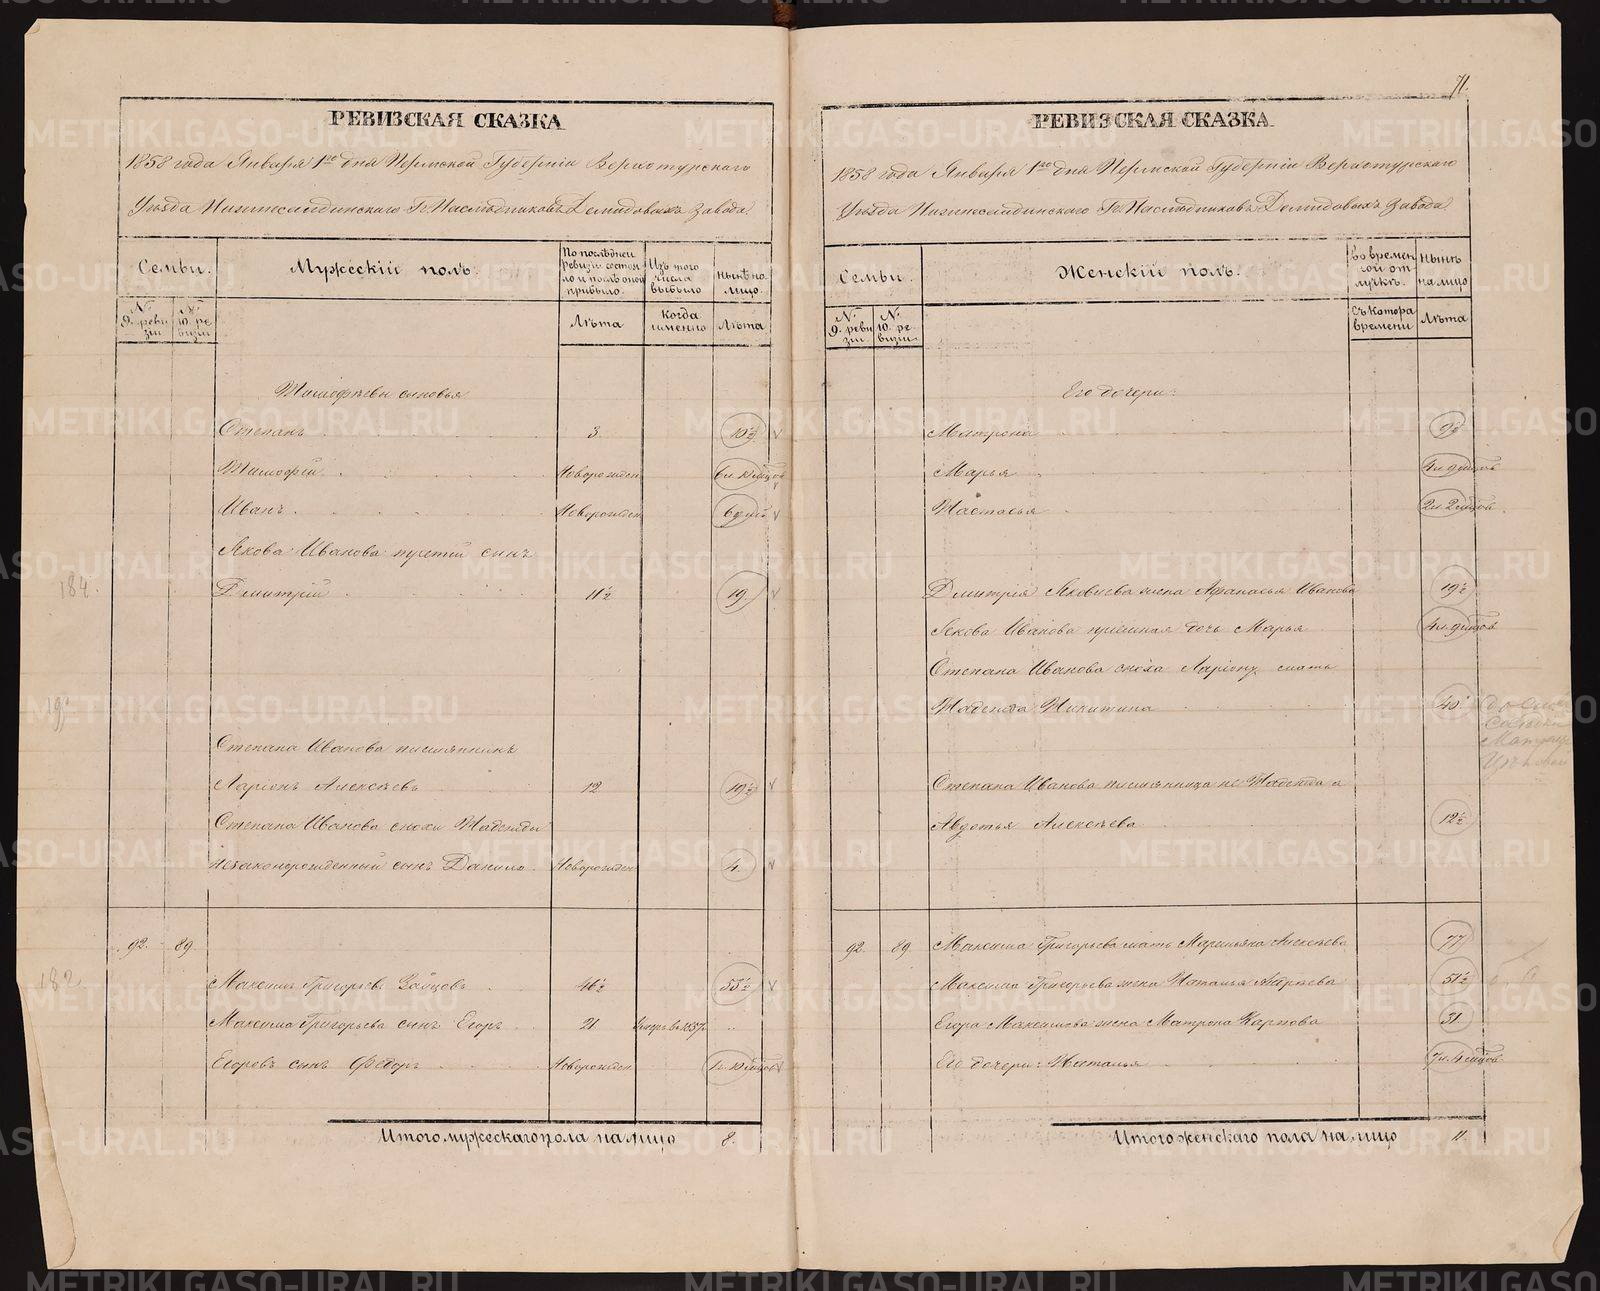 РЕВИЗСКАЯ СКАЗКА
1858 года Января 1го дня Пермской Губерніи Верхотурскаго
Уѣзда Нижнесалдинскаго Гг. Наслѣдниковъ Демидовыхъ Завода.
Семьи.
Мужескій полъ.
По послѣдней ревизіи состояло и послѣ оной прибыло.
Изъ того числа выбыло
нынѣ на лицо.
№ 9. ревизіи
№ 10. ревизіи
Лѣта
Когда именно
Лѣта
Тимофѣевы сыновья
Степанъ 3. 10½
Тимофей Новорожден 6л. 10 мцов
Иванъ Новорожден 6 дней
Якова Иванова третій сынъ
184. Дмитрій 11½ 19
Степана Иванова племянникъ
Ларіонъ Алексѣевъ 12 19½
Степана Иванова снохи Надежды
незаконорожденный сынъ Данило Новорожден 4.
92. 89.
182 Максимъ Григорьевъ Зайцовъ 46½ 55½
Максима Григорьева сынъ Егоръ 21 Умеръ въ 1857г.
Егоровъ сынъ Федоръ Новорожден
Итого мужескаго пола на лицо 8.
71.
РЕВИЗСКАЯ СКАЗКА
1858 года Января 1го дня Пермской Губерніи Верхотурскаго
Уѣзда Нижнесалдинскаго Гг. Наслѣдниковъ Демидовыхъ Завода
Семьи.
Женскій полъ.
во временной отлучкѣ.
нынѣ на лицо
№ 9. ревизіи
№ 10. ревизіи
Съ котора времени
Лѣта
Его дочери:
Матрона 9½
Марья 4л. 9 мцов
Настасья 2л. 2 мцов.
Дмитрія Яковлева жена Афанасья Иванова 19½
Якова Иванова приемная дочь Марья 4л. 9 мцов
Степана Иванова сноха Ларіону мать
Надежда Никитина 40.
Степана Иванова племянница Надежда
Авдотья Алексѣева 12½
92. 89. Максима Григорьева мать Маремьяна Алексѣева 77
Максима Григорьева жена Наталья Андреева 51½
Егора Максимова жена Матрона Карпова 31
Его дочери: Наталья 7л. 4 мцов
Итого женскаго пола на лицо 11.
METRIKI.GASO-URAL.RU